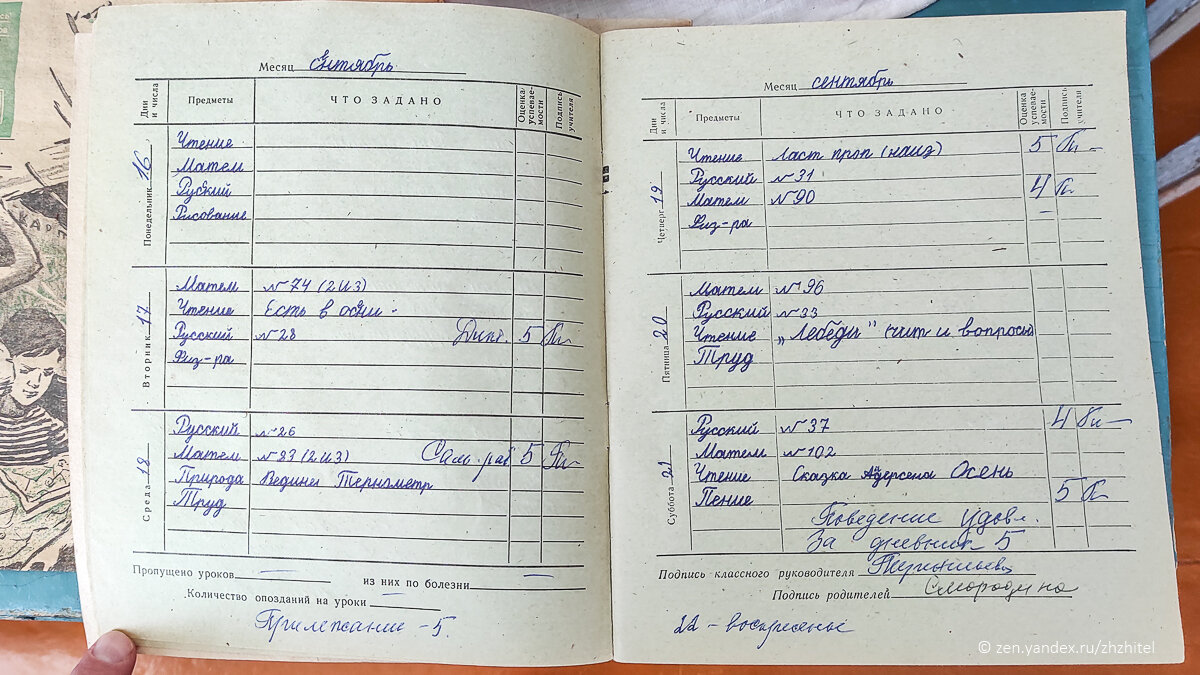 Месяц сентябрь
Дни и числа Предметы ЧТО ЗАДАНО Оценка успевае- мости Подпись учителя
Понедельник 16
Чтение
Матем
Русский
Рисование
Вторник 17
Матем №74 (2 и 3)
Чтение Есть в осени
Русский №28 Дикт. 5
Физ-ра
Среда 18
Русский №26
Матем №83 (2 и 3) Сам. раб 5
Природа Термометр
Труд
Пропущено уроков — из них по болезни —
Количество опозданий на уроки —
Прилежание -5.
Месяц сентябрь
Дни и числа Предметы ЧТО ЗАДАНО Оценка успевае- мости Подпись учителя
Четверг 19
Чтение Ласт проп (наиз) 5
Русский №31
Матем №90 4
Физ-ра
Пятница 20
Матем №96
Русский №33
Чтение „Лебеди" чит и вопросы
Труд
Суббота 21
Русский №37 4
Матем №102
Чтение Сказка Адерсена Осень
Пение 5
Поведение удовл.
За дневник 5
Подпись классного руководителя
Подпись родителей Смородина
22 - воскресенье
КАРП
© zen.yandex.ru/zhzhitel